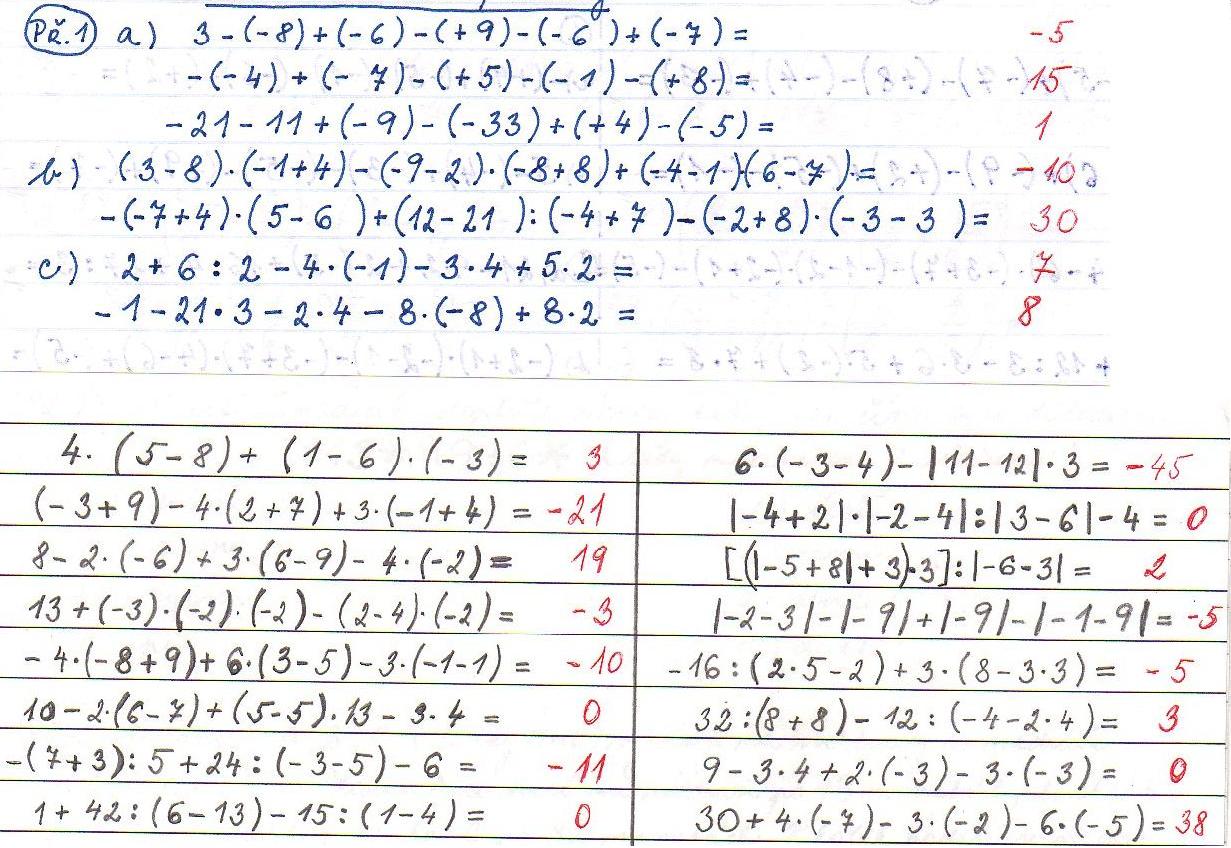 Př. 1 a) 3-(-8)+(-6)-(+9)-(-6)+(-7)= -5
-(-4)+(-7)-(+5)-(-1)-(+8)= 15
-21-11+(-9)-(-33)+(+4)-(-5)= 1
b) (3-8)·(-1+4)-(-9-2)·(-8+8)+(-4-1)·(6-7)= -10
-(-7+4)·(5-6)+(12-21):(-4+7)-(-2+8)·(-3-3)= 30
c) 2+6:2-4·(-1)-3·4+5·2= 7
-1-21·3-2·4-8·(-8)+8·2= 8
4·(5-8)+(1-6)·(-3)= 3
(-3+9)-4·(2+7)+3·(-1+4)= -21
8-2·(-6)+3·(6-9)-4·(-2)= 19
13+(-3)·(-2)·(-2)-(2-4)·(-2)= -3
-4·(-8+9)+6·(3-5)-3·(-1-1)= -10
10-2·(6-7)+(5-5)·13-3·4= 0
-(7+3):5+24:(-3-5)-6= -11
1+42:(6-13)-15:(1-4)= 0
6·(-3-4)-|11-12|·3= -45
|-4+2|·|-2-4|:|3-6|-4= 0
[(|-5+8|+3)·3]:|-6-3|= 2
|-2-3|-|-9|+|-9|-|-1-9|= -5
-16:(2·5-2)+3·(8-3·3)= -5
32:(8+8)-12:(-4-2·4)= 3
9-3·4+2·(-3)-3·(-3)= 0
30+4·(-7)-3·(-2)-6·(-5)= 38